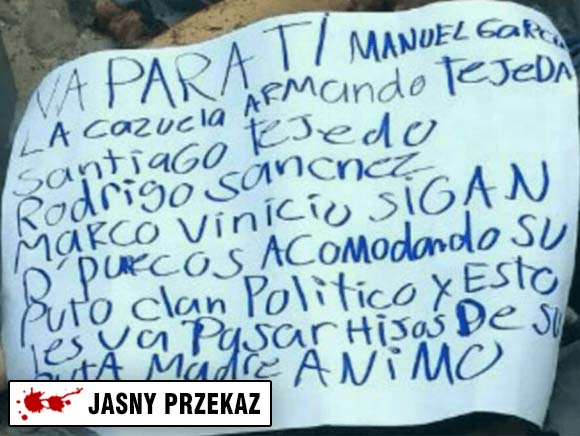 VA PARA TI MANUEL GARCIA
LA CAZUELA ARMANDO TEJEDA
SANTIAGO TEJEDO
RODRIGO SANCHEZ
MARCO VINICIO SIGAN
D PUERCOS ACOMODANDO SU
PUTO CLAN POLITICO Y ESTO
LES VA PASAR HIJOS DE SU
PUTA MADRE ANIMO
JASNY PRZEKAZ